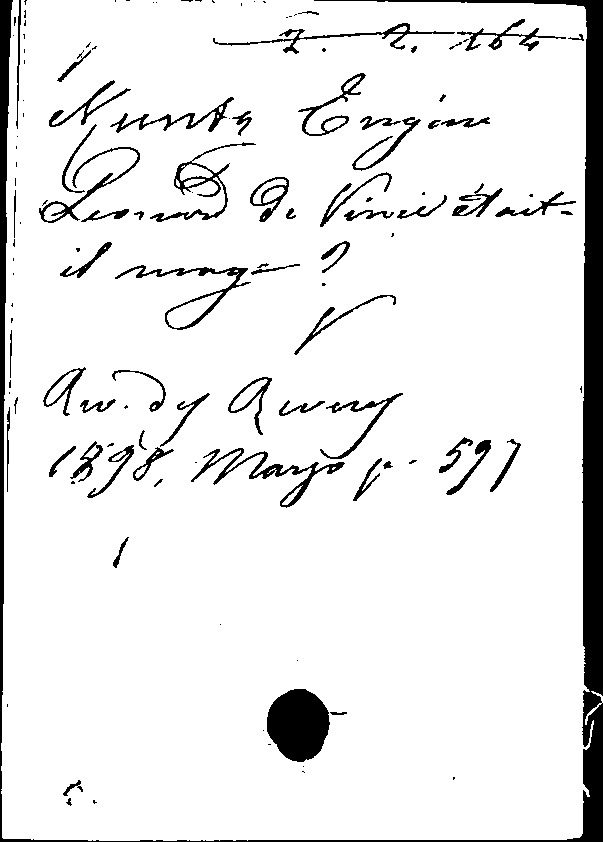 Z. 2. 164
Muntz Eugène
Leonard de Vinci était-
il mage?
Rev. des Revues
1898, Marzo p. 597